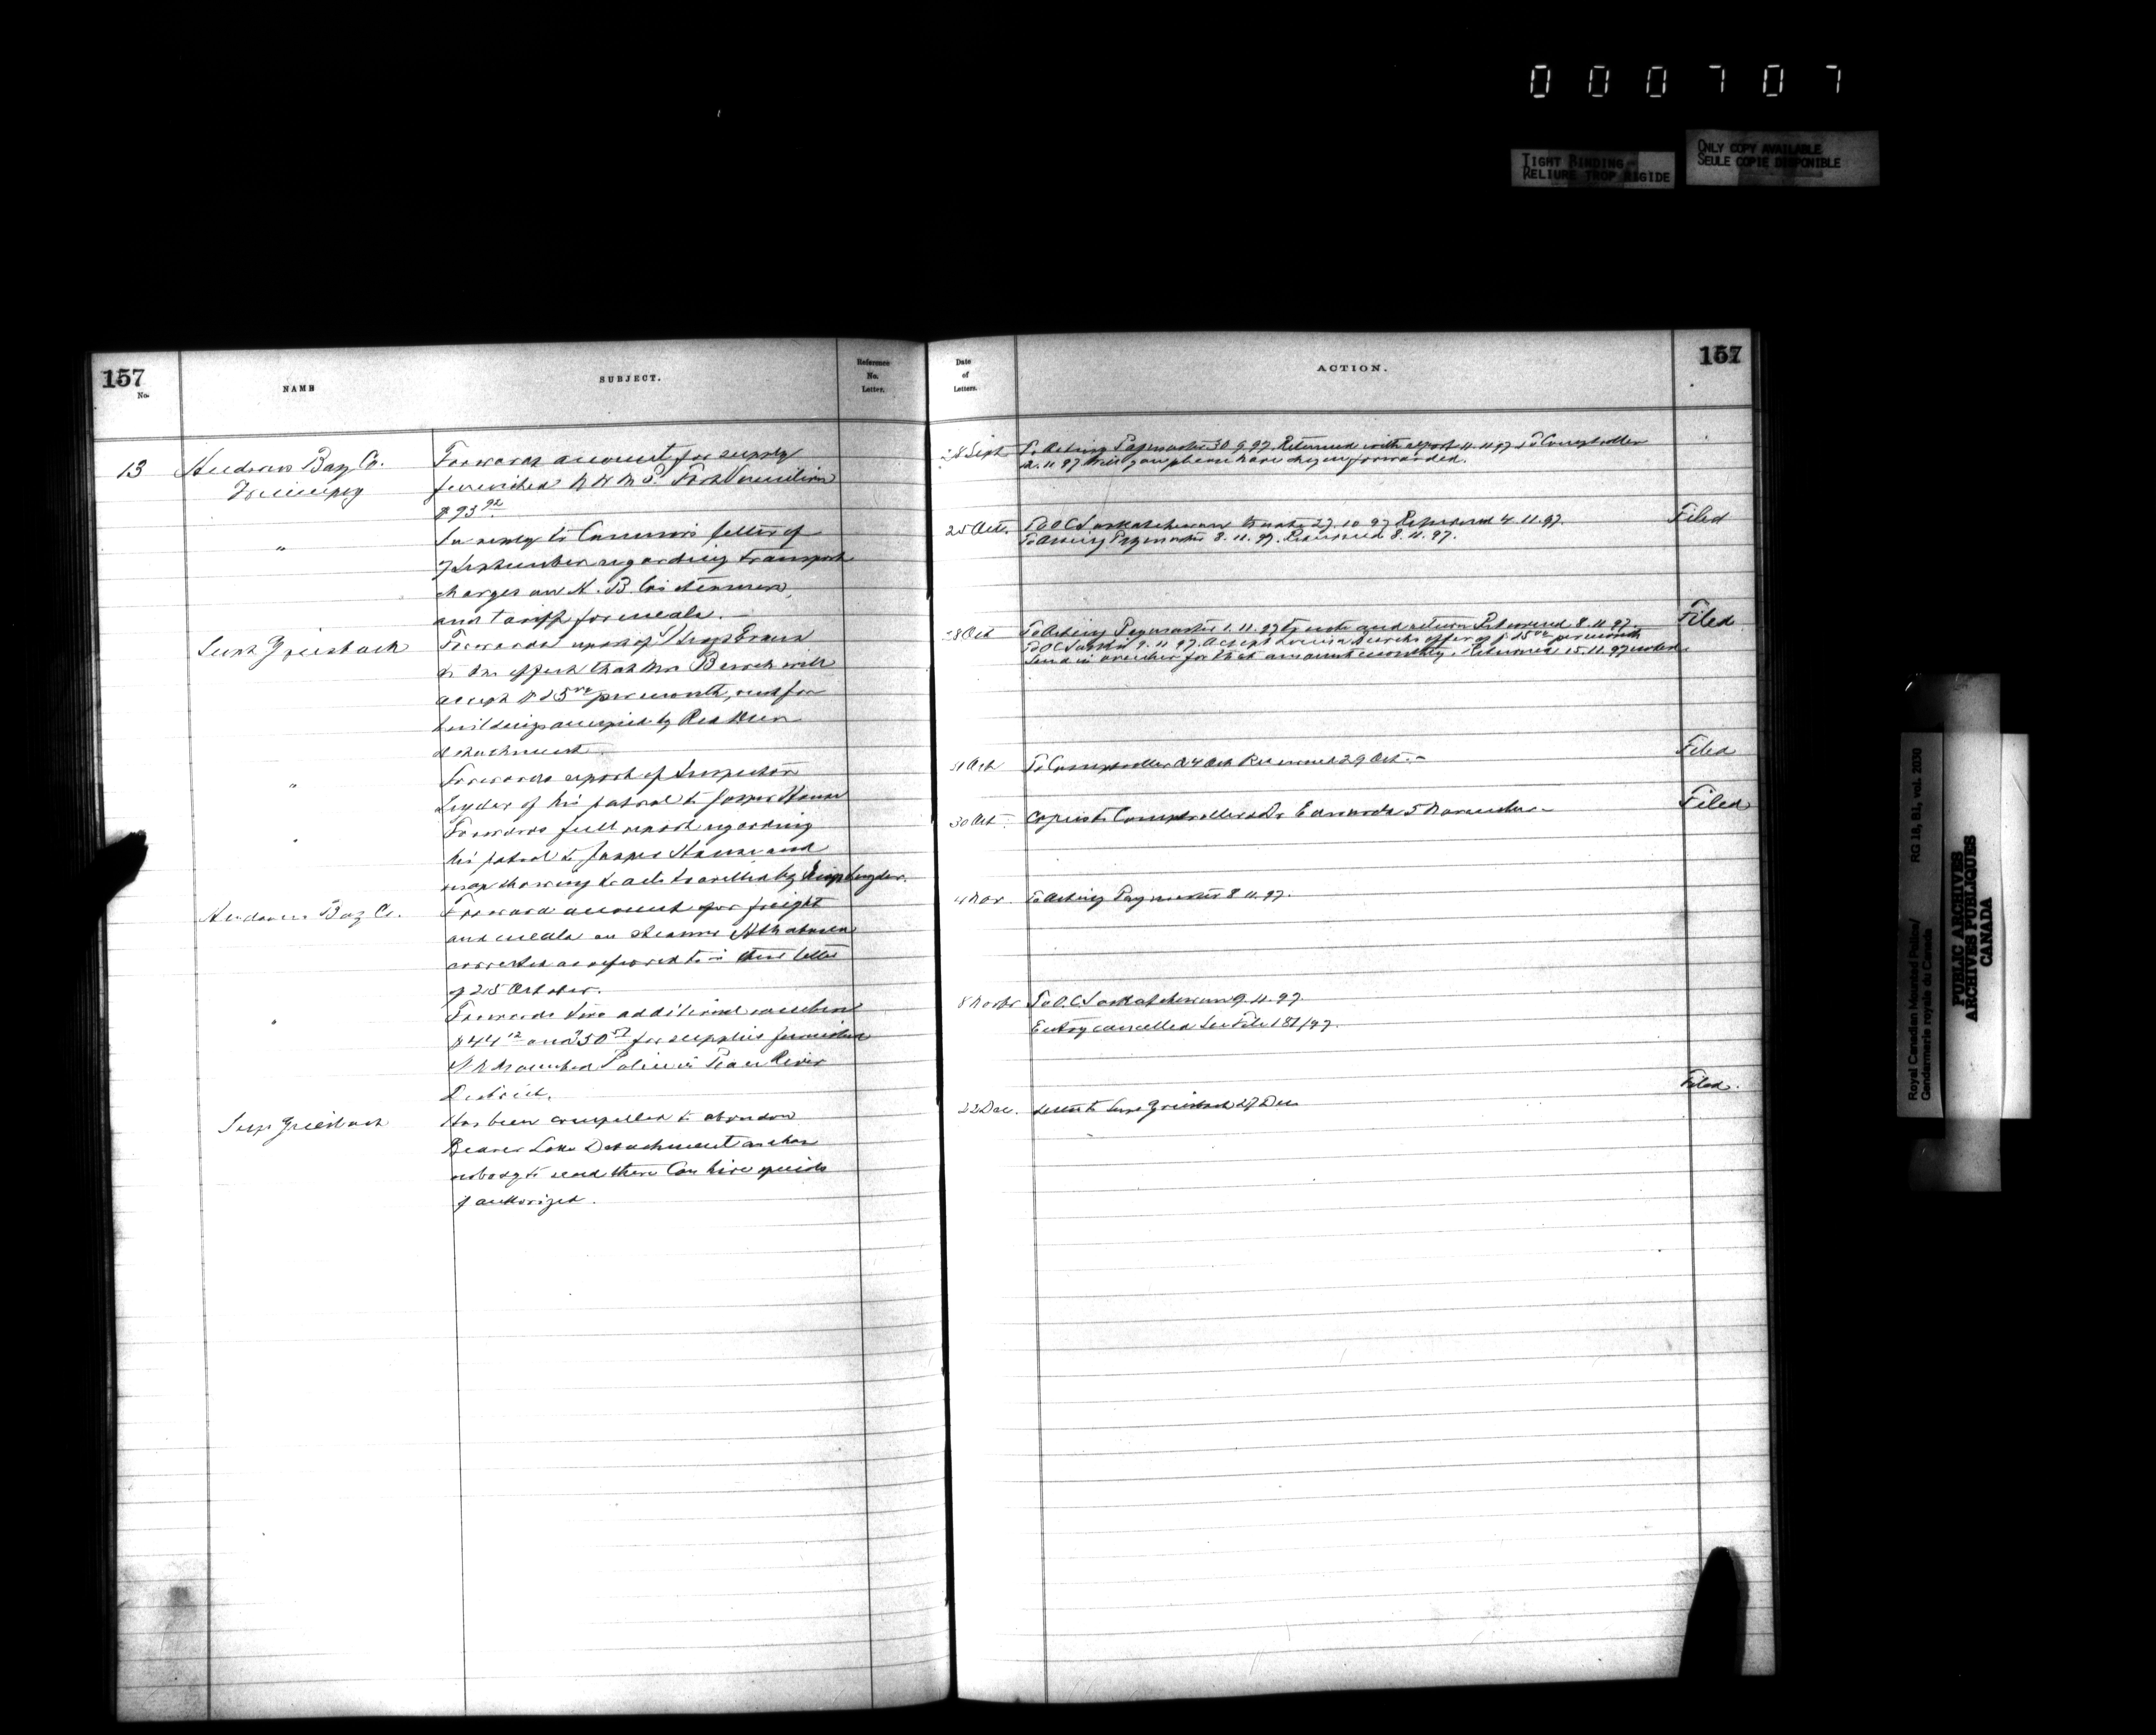 000707
TIGHT BINDING
RELIURE TROP RIGIDE
ONLY COPY AVAILABLE
SEULE COPIE DISPONIBLE
157
No.
NAME
SUBJECT.
Reference
No.
Letter.
13
Hudsons Bay Co.
Winnipeg
Forwards account for supply
furnished N W M P. Fort Vermilion
$93 92
"
In reply to Commrs letter of
7 September regarding transport
charges on H. B. Cos steamers,
and tariff for meals.
Supt Griesbach
Forwards report of S/Sergt
to the effect that Mrs will
accept $15 00 per month, rent for
building occupied by Red Deer
detachment.
"
Forwards report of Inspector
Snyder of his patrol to Jasper House
"
Forwards full report regarding
his patrol to Jasper House and
map showing trails travelled by Insp Snyder.
Hudsons Bay Co.
Forward account for freight
and meals on steamer Athabasca
corrected as referred to in their letter
of 25 October.
"
Forwards two additional vouchers
$44 12 and 350 57 for supplies furnished
N W Mounted Police in Peace River
District.
Supt Griesbach
Has been compelled to abandon
Beaver Lake Detachment as has
nobody to send there Can hire
if authorized.
Date
of
Letters.
ACTION.
157
28 Sept
To Acting Paymaster 30 9 97 Returned with report 11.11.97 To Comptroller
12.11 97 Will you please have cheque forwarded.
25 Oct.
To O C Saskatchewan to note 27.10 97 Returned 4.11.97.
To Acting Paymaster 8.11.97. Returned 8.11.97.
Filed
28 Oct
To Acting Paymaster 1.11.97 to note and return Returned 8.11.97.
To O C 9.11 97. Accept offer of $15 00 per month
Send in voucher for that amount monthly. Returned 15.11.97 noted.
Filed
To Comptroller Oct Returned 29 Oct. -
Filed
30 Oct
Copies to Comptroller Edwards 5 November -
Filed
4 Nov.
To Acting Paymaster 8 11.97.
8 Novbr
To O.C Saskatchewan 9.11.97.
Entry cancelled See File 181/97.
22 Dec.
Letter to Supt Griesbach 27 Dec
Filed.
Royal Canadian Mounted Police/
Gendarmerie royale du Canada
RG 18, B1, vol. 2030
PUBLIC ARCHIVES
ARCHIVES PUBLIQUES
CANADA